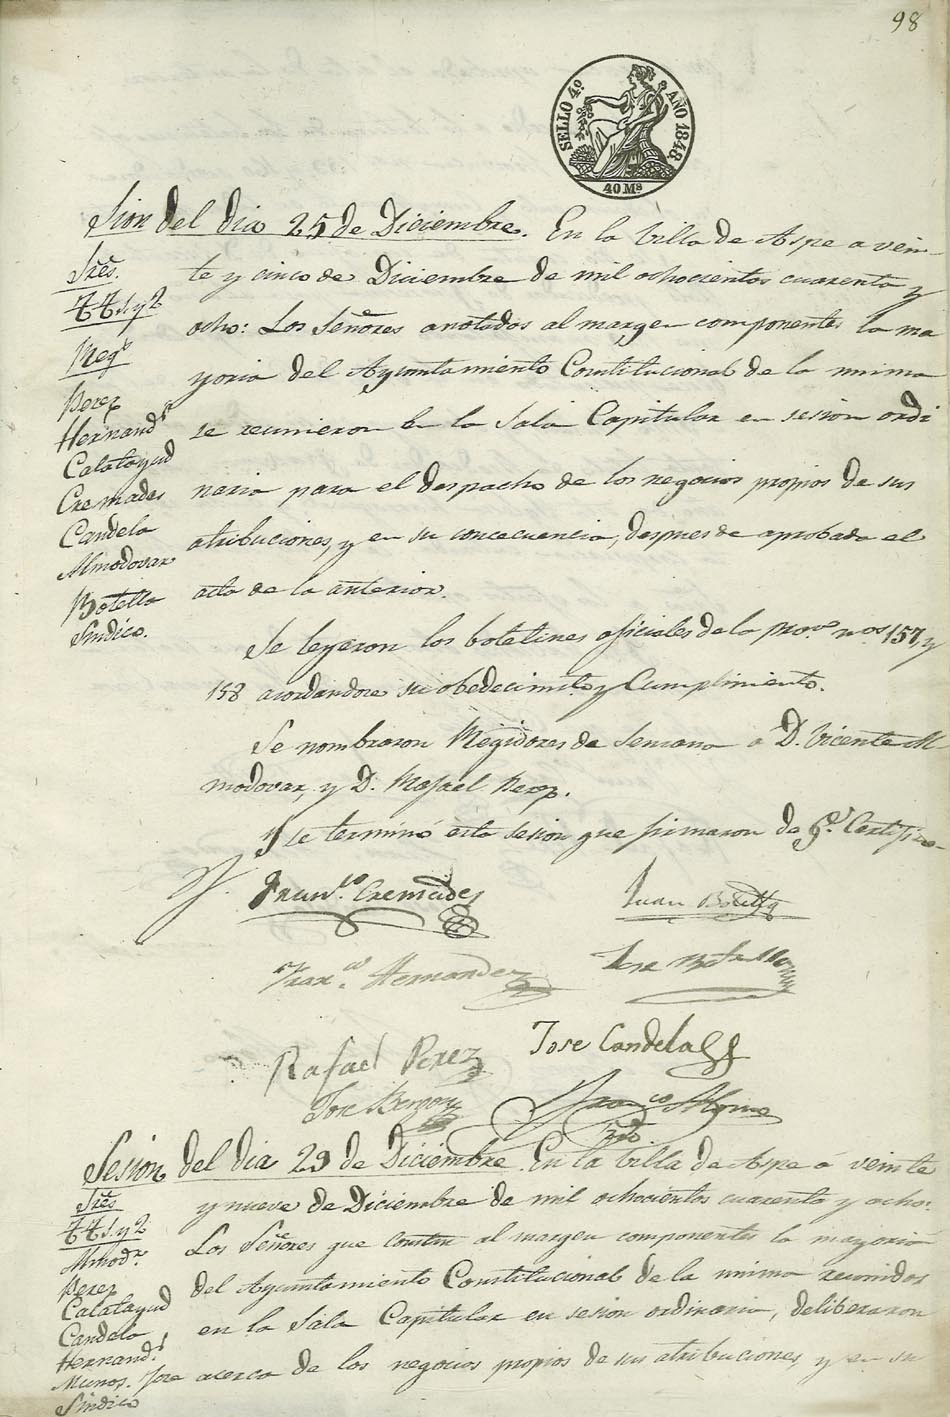 98
SELLO 4º AÑO 1848
40 Ms
Sion del dia 25 de Diciembre. En la Villa de Aspe a vein-
te y cinco de Diciembre de mil ochocientos cuarenta y
ocho: Los Señores anotados al margen componentes la ma
yoria del Ayuntamiento Constitucional de la misma
se reunieron en la Sala Capitular en sesion ordi
naria para el despacho de los negocios propios de sus
atribuciones, y en su concecuencia, despues de aprobada el
acta de la anterior.
Sres.
TT 1. y 2
Regs
Perez
Hernands
Calatayud
Cremades
Candela
Almodovar
Botella
Sindico.
Se leyeron los boletines oficiales de la prova nos 157, y
158 acordandose su obedecimto y Cumplimiento.
Se nombraron Regidores de Semana a D. Vicente Al-
modovar, y D. Rafael Perez.
Y se terminó esta sesion que firmaron de q.e Certifico-
Franco Cremades
Juan Botella
Franco Hernandez
Jose Botella
Rafael Perez
Jose Candela
Jose
Franco
Srio
Sesion del dia 29 de Diciembre En la Villa de Aspe á veinte
y nueve de Diciembre de mil ochocientos cuarenta y ocho:
Los Señores que constn al margen componentes la mayoria
del Ayuntamiento Constitucional de la misma reunidos
en la Sala Capitular en sesion ordinaria, deliberaron
acerca de los negocios propios de sus atribuciones, y en su
Sres
TT 1. y 2
Almodr.
Perez
Calatayud
Candela
Hernands
Munos. Jose
Sindico